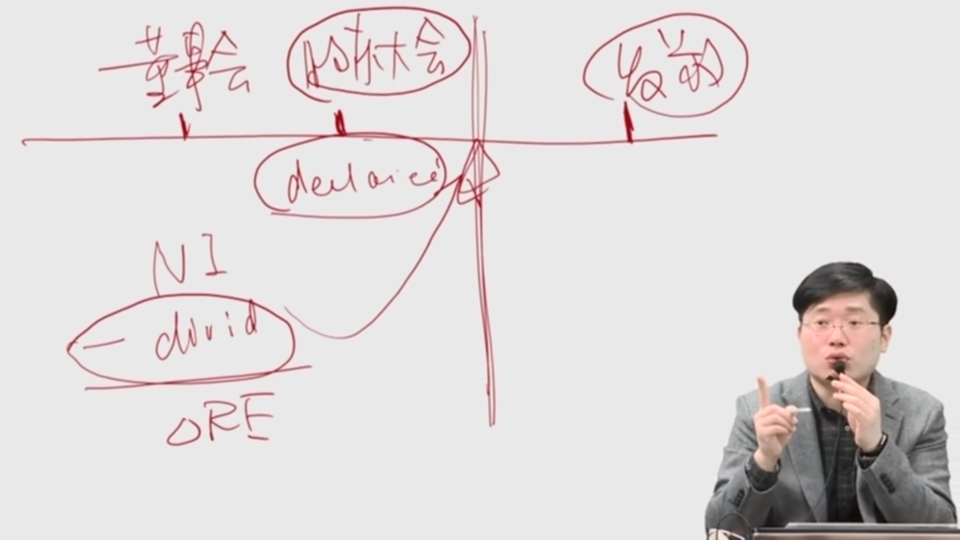 董事会 股东大会 发放
declared
NI
- divid
△RE